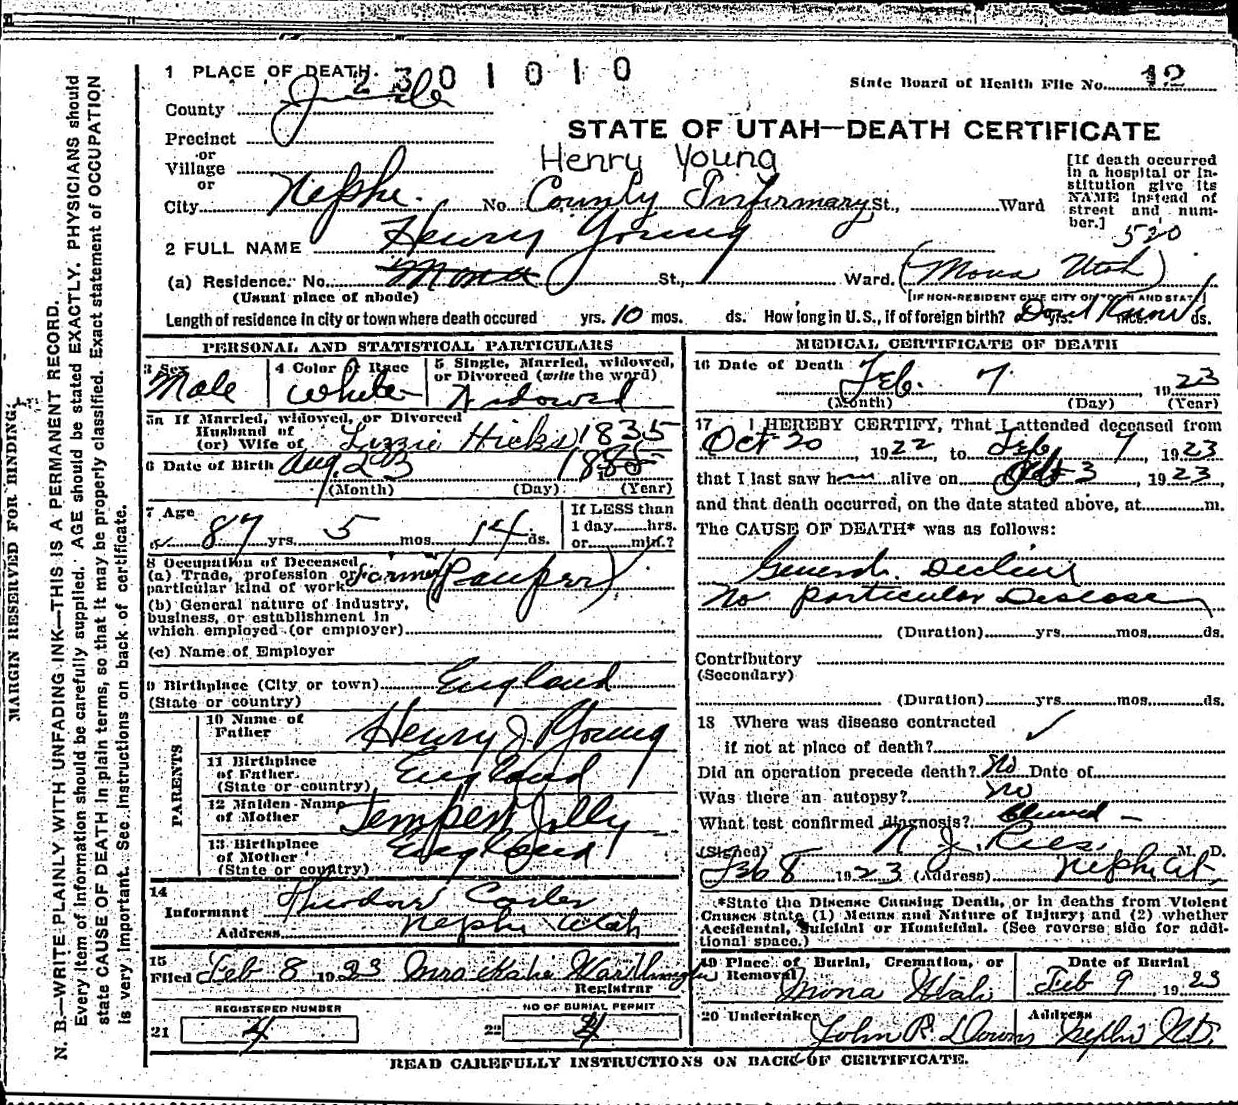 1 PLACE OF DEATH.
2 3 0 1 0 1 0
State Board of Health File No. 12
County Juab
Precinct
or
Village
or
City Nephi. No. County Infirmary St., Ward
STATE OF UTAH—DEATH CERTIFICATE
Henry Young
[If death occurred
in a hospital or in-
stitution give its
NAME instead of
street and num-
ber.]
520
2 FULL NAME Henry Young
(a) Residence: No. Mona St., Ward. (Mona Utah)
(Usual place of abode)
[IF NON-RESIDENT GIVE CITY OR TOWN AND STATE]
Length of residence in city or town where death occured yrs. 10 mos. ds. How long in U.S., if of foreign birth? Don't Know yrs. mos. ds.
PERSONAL AND STATISTICAL PARTICULARS
3 Sex Male
4 Color or Race White
5 Single, Married, widowed,
or Divorced (write the word)
Widowed
5a If Married, widowed, or Divorced
Husband of
(or) Wife of Lizzie Hicks
1835
6 Date of Birth Aug 23 1885
(Month) (Day) (Year)
7 Age 87 yrs. 5 mos. 14 ds.
If LESS than
1 day hrs.
or min.?
8 Occupation of Deceased
(a) Trade, profession or
particular kind of work Farmer (Pauper)
(b) General nature of industry,
business, or establishment in
which employed (or employer)
(c) Name of Employer
9 Birthplace (City or town) England
(State or country)
PARENTS
10 Name of
Father Henry J Young
11 Birthplace
of Father England
(State or country)
12 Maiden Name
of Mother Jolly
13 Birthplace
of Mother England
(State or country)
14
Informant Theodore
Address Nephi Utah
15
Filed Feb 8 1923 Mrs Katie
Registrar
REGISTERED NUMBER
21 4
NO OF BURIAL PERMIT
22 4
MEDICAL CERTIFICATE OF DEATH
16 Date of Death Feb. 7 1923
(Month) (Day) (Year)
17 I HEREBY CERTIFY, That I attended deceased from
Oct 20, 1922, to Feb 7, 1923
that I last saw him alive on 3, 1923,
and that death occurred, on the date stated above, at m.
The CAUSE OF DEATH* was as follows:
General Decline
No particular Disease
(Duration) yrs. mos. ds.
Contributory
(Secondary)
(Duration) yrs. mos. ds.
18 Where was disease contracted
if not at place of death?
Did an operation precede death? No Date of
Was there an autopsy? no
What test confirmed diagnosis?
(Signed) M. D.
Feb 8 1923 (Address) Nephi Ut.
*State the Disease Causing Death, or in deaths from Violent
Causes state (1) Means and Nature of Injury; and (2) whether
Accidental, Suicidal or Homicidal. (See reverse side for addi-
tional space.)
19 Place of Burial, Cremation, or
Removal Mona Utah
Date of Burial
Feb 9 1923
20 Undertaker John
Address Nephi Ut.
READ CAREFULLY INSTRUCTIONS ON BACK OF CERTIFICATE.
MARGIN RESERVED FOR BINDING.
N. B.—WRITE PLAINLY WITH UNFADING INK—THIS IS A PERMANENT RECORD.
Every item of information should be carefully supplied. AGE should be stated EXACTLY. PHYSICIANS should
state CAUSE OF DEATH in plain terms, so that it may be properly classified. Exact statement of OCCUPATION
is very important. See instructions on back of certificate.